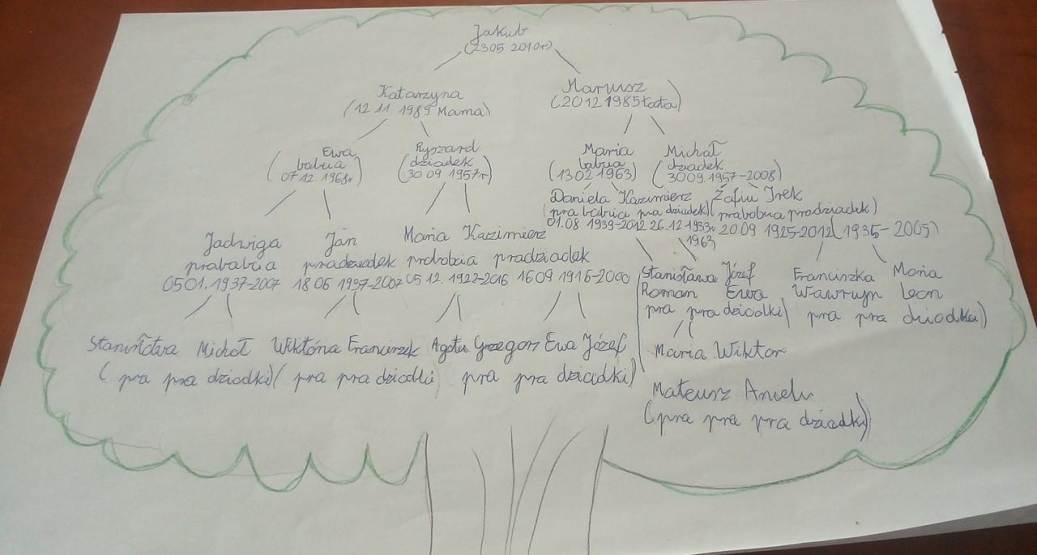 Jakub
(23.05 2010r)
Katarzyna
(12 11 1989 Mama)
Mariusz
(20 12 1985 tata)
Ewa
babcia
07 12 1968r
Ryszard
dziadek
(30 09 1957r)
Maria
babcia
(13 02 1963)
Michał
dziadek
30 09 1957-2008)
Daniela Kazimierz
(pra babcia pra dziadek)
01.08 1939-2012 26.12 1933r
1963
Irek
prababcia pradziadek)
20 09 1925-2012 (1935-2005)
Jadwiga
prababcia
05 01. 1937-2007
Jan
pradziadek
18 06 1937-2002
Maria Kazimierz
prababcia pradziadek
05 12. 1922-2016 16 09 1916-2000
Stanisława Józef
Roman Ewa
pra pra dziadki)
Franciszka Maria
Wawrzyn Leon
pra pra dziadki)
Stanisława Michał Wiktoria Franciszek Agata Grzegorz Ewa Józef
(pra pra dziadki) (pra pra dziadki pra pra dziadki)
Maria Wiktor
Mateusz Aniela
(pra pra pra dziadki)